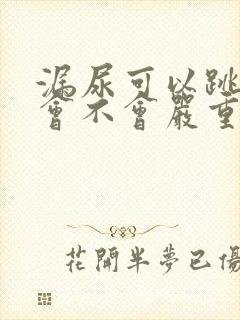 漏尿可以跳
會不會嚴重
花開半夢已傷